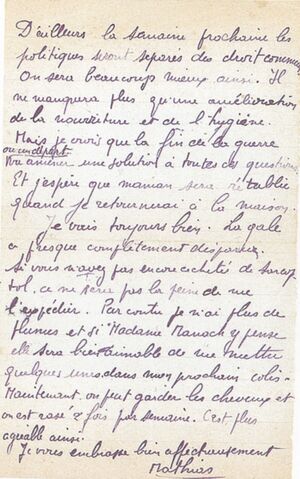 D'ailleurs la semaine prochaine les
politiques seront séparés des droit commun
On sera beaucoup mieux ainsi. Il
ne manquera plus qu'une amélioration
de la nourriture et de l'hygiène.
Mais je crois que la fin de la guerre
ou un départ
va amener une solution à toutes ces questions
Et j'espère que maman sera rétablie
quand je retournerai à la maison.
Je vais toujours bien. La gale
a presque complètement disparue.
Si vous n'avez pas encore acheté de
ce ne sera pas la peine de me
l'expédier. Par contre je n'ai plus de
plumes et si Madame Manach y pense
elle sera bien aimable de me mettre
quelques unes dans mon prochain colis.
Maintenant on peut garder les cheveux et
on est rasé 2 fois par semaine. C'est plus
agréable ainsi.
Je vous embrasse bien affectueusement
Mathias